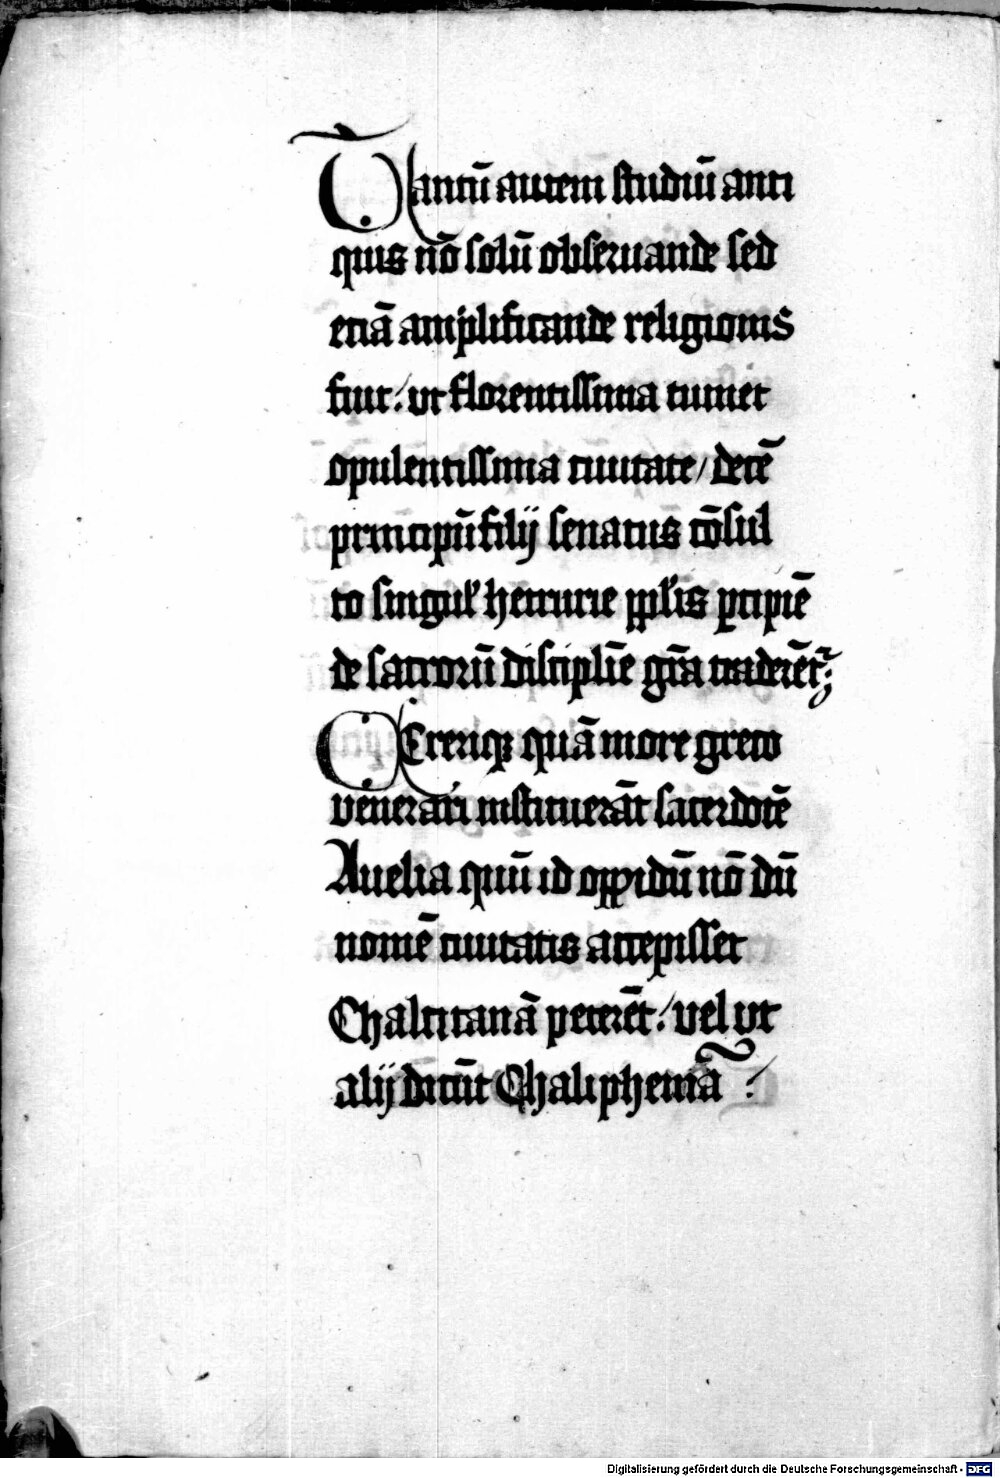 Tantū autem studiū anti
quis nō solū obseruande sed
etiā amplificande religionis
fuit: ut florentissima tumet
opulentissima ciuitate / decē
principū filij senatus cōsul
to singul' hetrurie ppl'is pcipiē
de sacrorū disciplīe grā traderēt̄;
Cererīq; quā more greco
venerari instituerāt sacerdotē
Auelia quū id oppidū nō dū
nomē ciuitatis accepisset
Chalcitanā peterēt: vel ut
alij dicūt Chaliphenā :
Digitalisierung gefördert durch die Deutsche Forschungsgemeinschaft - DFG